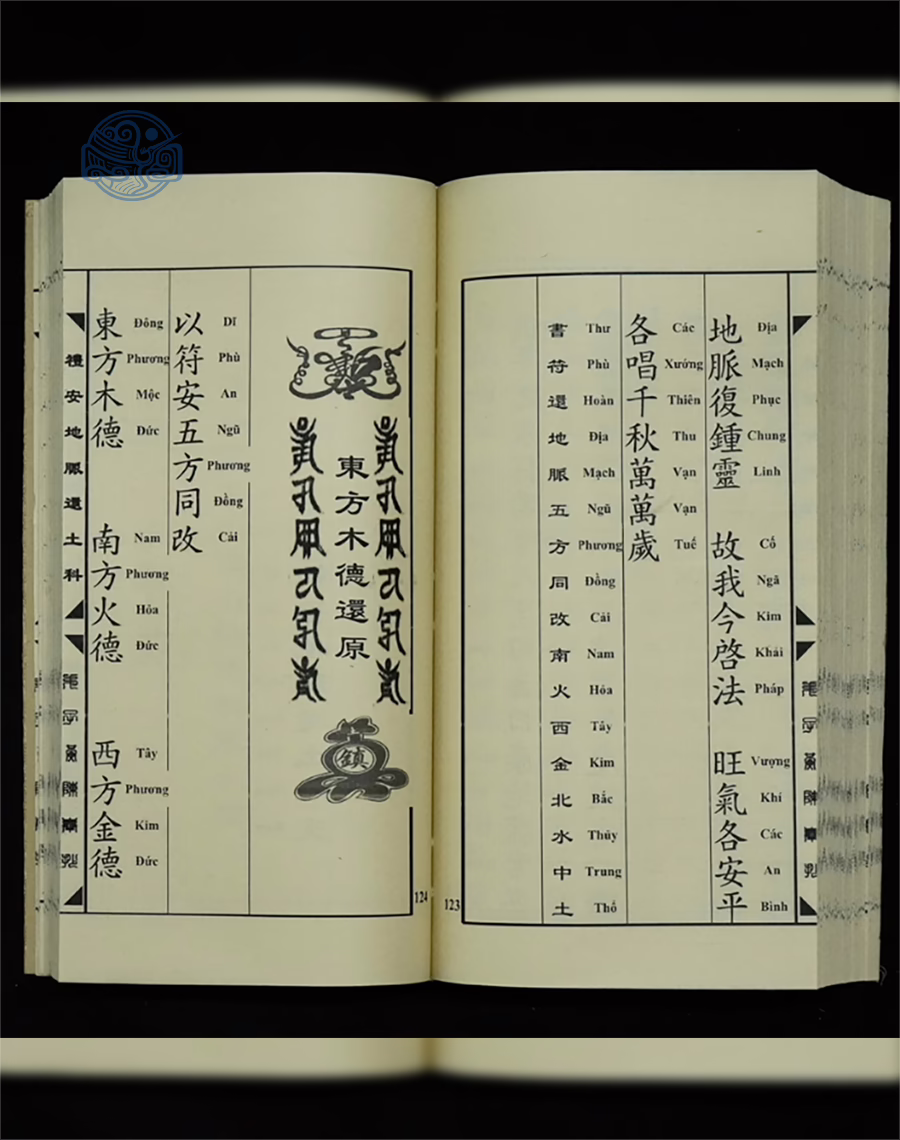 地脈復鍾靈 故我今啓法 旺氣各安平
Địa Mạch Phục Chung Linh Cố Ngã Kim Khải Pháp Vượng Khí Các An Bình
各唱千秋萬萬歲
Các Xướng Thiên Thu Vạn Vạn Tuế
書符還地脈五方同改南火西金北水中土
Thư Phù Hoàn Địa Mạch Ngũ Phương Đồng Cải Nam Hỏa Tây Kim Bắc Thủy Trung Thổ
123
東方木德還原
鎮
以符安五方同改
Dĩ Phù An Ngũ Phương Đồng Cải
東方木德 南方火德 西方金德
Đông Phương Mộc Đức Nam Phương Hỏa Đức Tây Phương Kim Đức
禮安地脈還土科
124